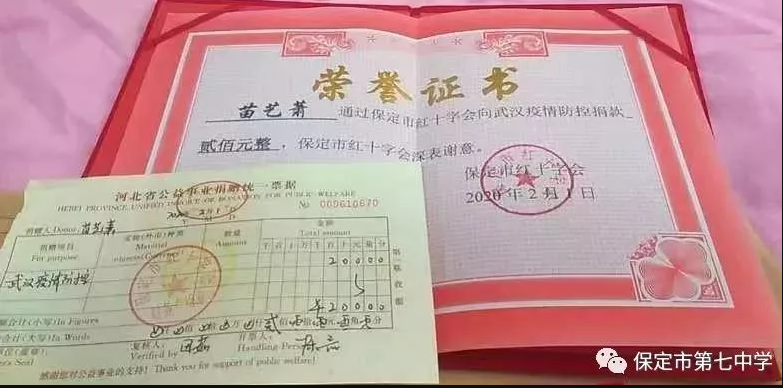 荣誉证书
苗艺萧 通过保定市红十字会向武汉疫情防控捐款
贰佰元整，保定市红十字会深表谢意。
保定市红十字会
2020年2月1日
河北省公益事业捐赠统一票据
HEBEI PROVINCE UNIFIED INVOICE OF DONATION FOR PUBLIC WELFARE
2020 年 2 月 1 日
No 000610670
捐赠人 Donor: 苗艺萧
捐赠项目 For purpose
实物(外币)种类 Material objects(Currency)
数量 Amount
金额 Total amount
千百十万千百十元角分
武汉疫情防控
20000
¥20000
额合计(小写)In Figures
合计(大写)In Words
仟 佰 拾 万 仟 贰佰 零拾 零元 零角 零分
复核人: Verified by
开票人: Handling Person
感谢您对公益事业的支持! Thank you for support of public welfare!
保定市第七中学